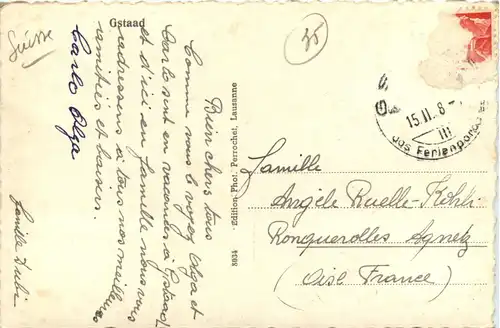 Gstaad
Suisse
35
Bien chers tous
Comme vous le voyez Olga et
Carlo sont en vacances à Gstaad
et d'ici en famille nous vous
adressons à tous nos meilleures
amitiés et baisers.
Carlo Olga
8034 Edition Phot. Perrochet, Lausanne
15.II. 8-
III
das Ferienpara
Famille
Angèle Ruelle-Kohli
Ronquerolles Agnetz
(Oise France)